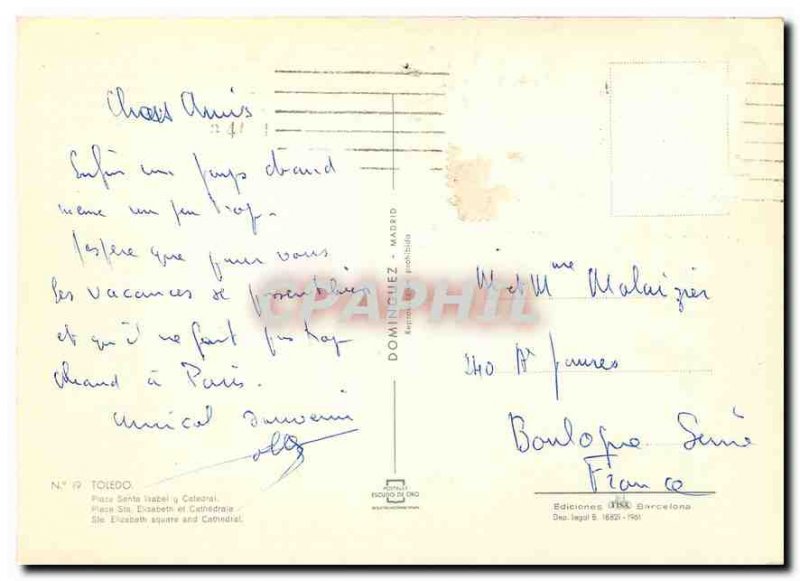 Chers Amis
Enfin un pays chaud
même un peu trop.
J'espère que pour vous
les vacances se passent bien
et qu'il ne fait pas trop
chaud à Paris.
Amical souvenir
N.º 19 TOLEDO.
Plaza Santa Isabel y Catedral.
Place Ste. Elisabeth et Cathédrale
Ste. Elizabeth square and Cathedral.
DOMINGUEZ - MADRID
prohibida
POSTALES
ESCUDO DE ORO
CPAPHIL
M et Mme Malaizier
240 Av Jaures
Boulogne Seine
France
Ediciones FISA Barcelona
Dep. legal B. 18821-1961